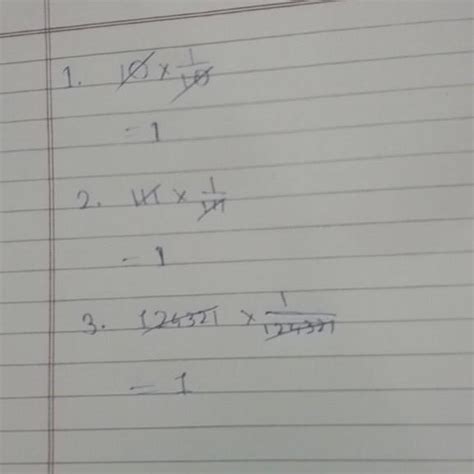 1. 10 × 1/10
= 1
2. 111 × 1/111
= 1
3. 124321 × 1/124321
= 1